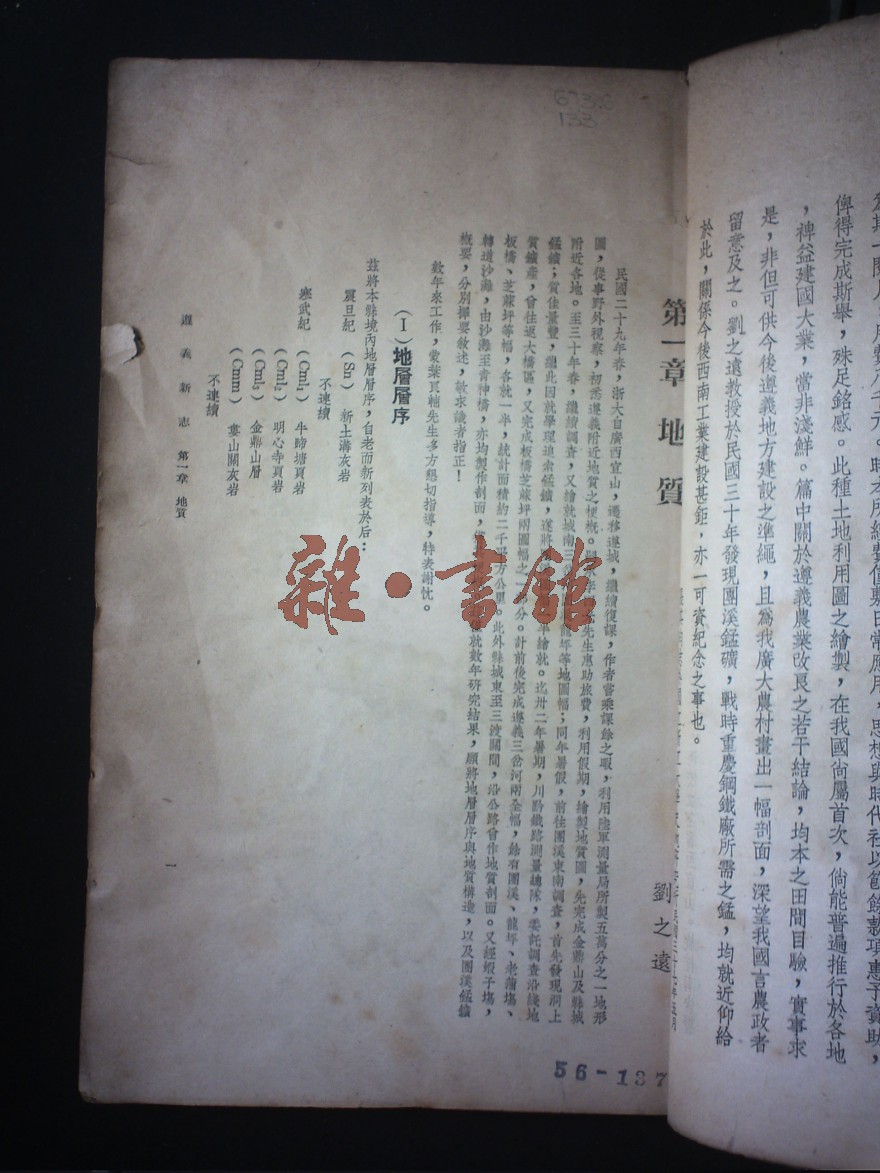 為我廣大農村畫出一幅剖面，深望我國言農政者
留意及之。劉之遠教授於民國三十年發現團溪錳礦，戰時重慶鋼鐵廠所需之錳，均就近仰給
於此，關係今後西南工業建設甚鉅，亦一可資紀念之事也。
俾得完成斯舉，殊足銘感。此種土地利用圖之繪製，在我國尚屬首次，倘能普遍推行於各地
，裨益建國大業，當非淺鮮。篇中關於遵義農業改良之若干結論，均本之田間目驗，實事求
是，非但可供今後遵義地方建設之準繩，且
第一章 地質
劉之遠
民國二十九年春，浙大自廣西宜山，遷移遵城，繼續復課，作者嘗乘課餘之暇，利用陸軍測量局所製五萬分之一地形
圖，從事野外視察，初悉遵義附近地質之梗概。
先生惠助旅費，利用假期，繪製地質圖，先完成金鼎山及縣城
附近各地。至三十年春，繼續調查，又繪就城南三
龍坪等地圖幅；同年暑假，前往團溪東南調查，首先發現洞上
錳鑛；質佳量豐，繼此因就學理追索錳鑛，遂將
年繪就。迄卅二年暑期，川黔鐵路測量總隊，委託調查沿綫地
質鑛產，曾往返大橋區，又完成板橋芝蔴坪兩圖幅之一部分。計前後完成遵義三岔河兩全幅，餘有團溪、龍坪、老蒲塲、
板橋、芝蔴坪等幅，各就一半，統計面積約二千
方公里。此外縣城東至三渡關間，沿公路曾作地質剖面。又經蝦子塲，
轉道沙灘，由沙灘至青神橋，亦均製作剖面，
就數年研究結果，願將地層層序與地質構造，以及團溪錳鑛
概要，分別擇要敘述，敏求識者指正！
數年來工作，蒙葉良輔先生多方懇切指導，特表謝忱。
（I）地層層序
茲將本縣境內地層層序，自老而新列表於后：
震旦紀 （Sn） 新土溝灰岩
不連續
寒武紀 （Cml₃） 牛蹄塘頁岩
（Cml₂） 明心寺頁岩
（Cml₁） 金鼎山層
（Cmm） 婁山關灰岩
不連續
遵義新志 第一章 地質
一
雜·書館
56-137